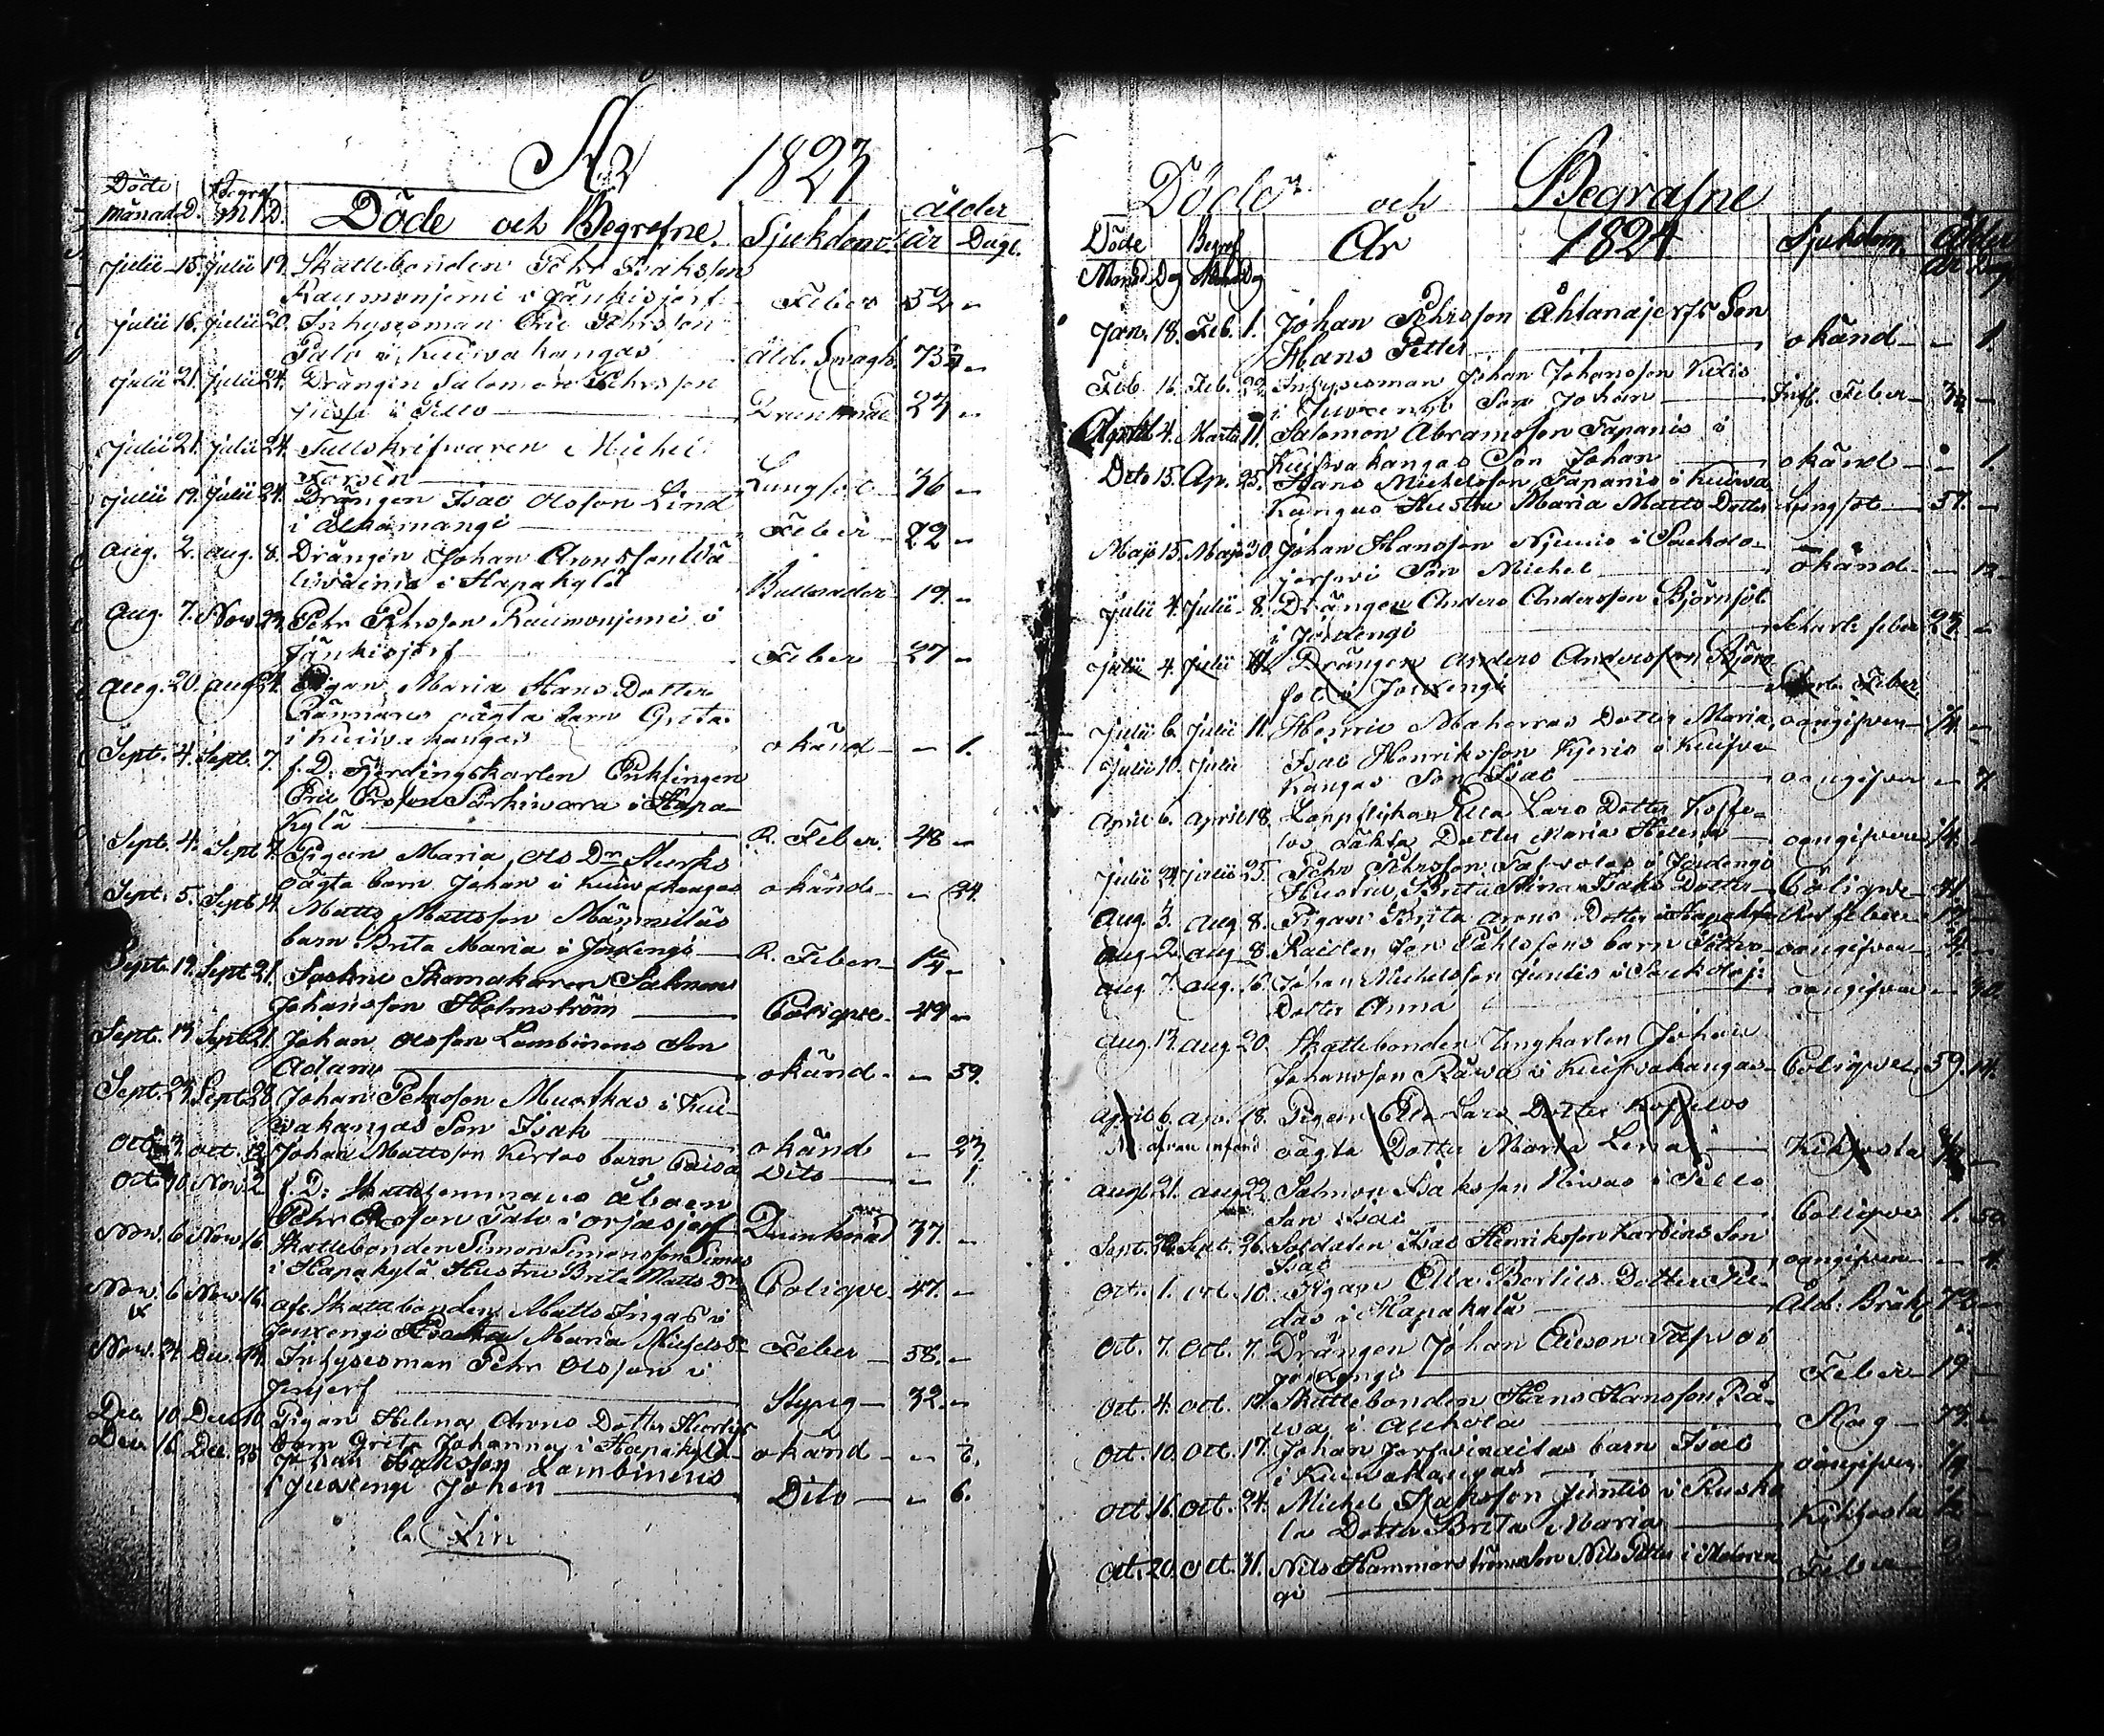 År 1823
Döde Begraf. ålder
månad D. M D. Döde och Begrafne. Sjukdom. år Dagr.
Julii 15. Julii 19. Skattebonden Pehr Isaksson
Raumonjemi i Jänkisjerf Feber 52 –
Julii 16. Julii 20. Inhysesman Eric Pehrsson
Palo i Kuivakangas Åld. Swagh. 73
Julii 21. Julii 24. Drängen Salomon Pehrsson
i Pello Drunknad 23 –
Julii 21. Julii 24. Tullskrifwaren Michel
Forsén Lungsot 36 –
Julii 19. Julii 24. Drängen Isac Olsson Lind
i Alkamangi Feber 22 –
Aug. 2. aug. 8. Drängen Johan Aronsson Wä
i Hapakylä 19. –
Aug. 7. Nov. 23. Pehr Pehrsson Raumonjemi i
Jänkisjerf Feber 27 –
Aug. 20. aug. 24. Pigan Maria Hans Dotter
Rännares oägta barn Greta
i Kuivakangas okänd – 1.
Sept. 4. Sept. 7. f. D. Fjerdingskarlen
Eric Ersson Särkiwara i Hapa-
kylä R. Feber. 48 –
Sept. 4. Sept. 7. Pigan Maria Ols Dr. Sturks
oägta barn Johan i Kuivakangas okänd – 24.
Sept. 5. Sept. 14. Matts Mattsson
barn Brita Maria i Joxengi R. Feber 1/4 –
Sept. 19. Sept. 21. Sockne Skomakaren Salmon
Johansson Holmström Colique. 49 –
Sept. 13. Sept. 21. Johan Olsson Lambinens Son
Adam okänd – 39.
Sept. 23. Sept. 28. Johan Pehrsson Muotkas i Kui-
vakangas Son Isak okänd – 23.
Oct. 3. oct. 12. Johan Mattsson Kertos barn Caisa Dito – 1.
Oct. 10. Nov. 2. f. D. Skattehemmans åboen
Pehr Ersson Palo i Orjasjerf Drunknad 37. –
Nov. 6. Nov. 16. Skattebonden Simon Simonsson Simos
i Hapakylä Hustru Brita Matts Dr. Colique. 47. –
Nov. 6. Nov. 16. afl. Skattebonden Matts Ingas i
Joxengi Enka Maria Michels Dr. Feber 58. –
Nov. 24. Dec. 14. Inhysesman Pehr Olsson i
Styng 32. –
Dec. 10. Dec. 10. Pigan Helena Arons Dotter
barn Greta Johanna i Hapakylä okänd – 1/2.
Dec. 16. Dec. 25. Johan Isaksson Lambinens
i Juoxengi Johan Dito – 6.
Lin

Döde och Begrafne
Döde Begraf År 1824. Sjukdom. Ålder
Månad Dag Månd Dag År Dag
Jan. 18. Feb. 1. Johan Pehrsson Ahlanajerfs Son
Hans Petter okänd – 1
Feb. 16. Feb. 22. Inhysesman Johan Johansson
i Juoxengi Son Johan Inff. Feber –
4. Martii 11. Salomon Abramsson Tapanis i
Kuifwakangas Son Johan okänd – 1.
Dito 15. Ap. 25. Hans Michelsson Tapanis i Kuiva
Kangas Hustru Maria Matts Dotter Lungsot 57. –
Maji 15. Maji 30. Johan Hansson i Puokolo-
jerfwi Son Michel okänd – 12
Julii 4. Julii 8. Drängen Anders Andersson Björnfot
i Joxengi Skarl. feber 23 –
Julii 4. Julii 11. Drängen Anders Andersson Björn
fot i Joxengi Skarl. Feber
Julii 6. Julii 11. Henric Dotter Maria oangifven 1/4 –
Julii 10. Julii Isac Henriksson i Kuifva
Kangas Son Isac oangifven – 7.
April 6. April 18. Lars Dotter
oäkta Dotter Maria Helena oangifven 1/4.
Julii 24. Julii 25. Pehr Pehrsson i Joxengi
Hustru Brita Stina Isaks Dotter Colique 41. –
Aug. 3. Aug. 8. Pigan Brita Arons Dotter i Hapakylä Röt feber
Aug. 2. aug. 8. barn Petter oangifven
aug. 7. aug. 16. Johan Michelsson Juntis i
Dotter Anna oangifven – 30
Aug. 13. aug. 20. Skattebonden Ungkarlen Johan
Johansson Räwa i Kuifvakangas Colique 59. 14.
April 6. Ap. 18. Pigan Ella Lars Dotter
är ofvan införd oägta Dotter Maria Lena Kikhosta
Augt. 21. aug. 22. Salmon Isaksson Niwas i Pello
Son Isac Colique 1. 50
Sept. 22. Sept. 26. Soldaten Isac Henriksson Karbins Son
Isac oangifven – 4.
Oct. 1. oct. 10. Pigan Ella Dotter
i Hapakylä Ald. Bräk. 72 –
Oct. 7. Oct. 7. Drängen Johan Ericson
Joxengi Feber 19 –
Oct. 4. oct. 17. Skattebonden Hans Hansson Rä-
wa i Slag 73. –
Oct. 10. Oct. 17. Johan barn Isac
i Kuivakangas oangifven. 1/4 –
Oct. 16. Oct. 24. Michel Isaksson Juntis i Rusko
la Dotter Brita Maria Kikhosta 1/2 –
Oct. 20. Oct. 31. Nils Hammarströms Son Nils Petter i
gi Feber